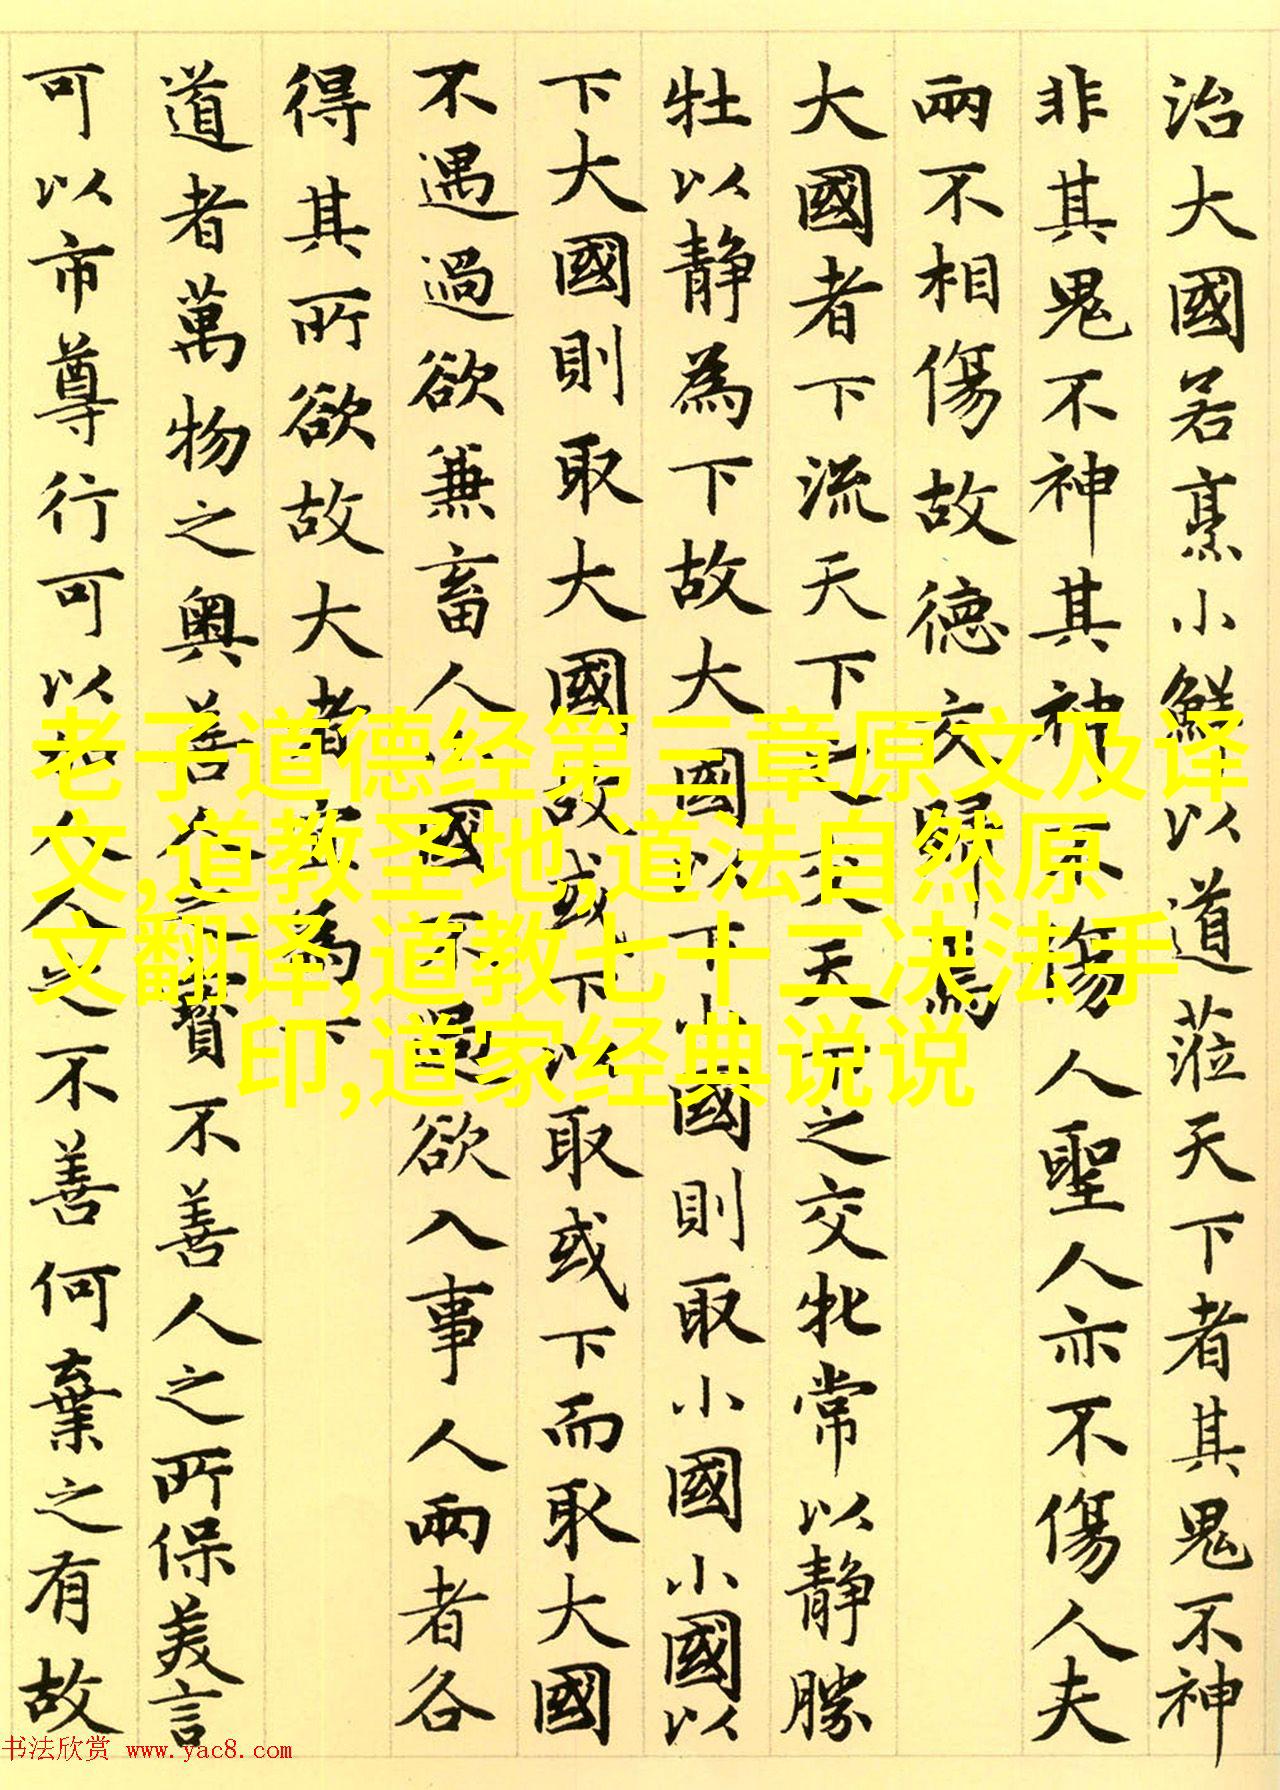 治大國若烹小鮮以道蒞天下者其鬼不神
非其鬼不神其神不傷人聖人亦不傷人夫
兩不相傷故德交歸焉
大國者下流天下之交天下之交牝常以静勝
牡以静為下故大國以下小國則取小國小國以
下大國則取大國故或下以取或下而取大國
不遇過欲兼畜人小國不過欲入事人兩者各
得其所欲故大者宜為下
道者萬物之奥善人之寳不善人之所保美言
可以市尊行可以加人人之不善何棄之有故
老子道德经第三章原文及译
文,道教圣地,道法自然原
文翻译,道教七十二决法手
印,道家经典说说
书法欣赏 www.yac8.com